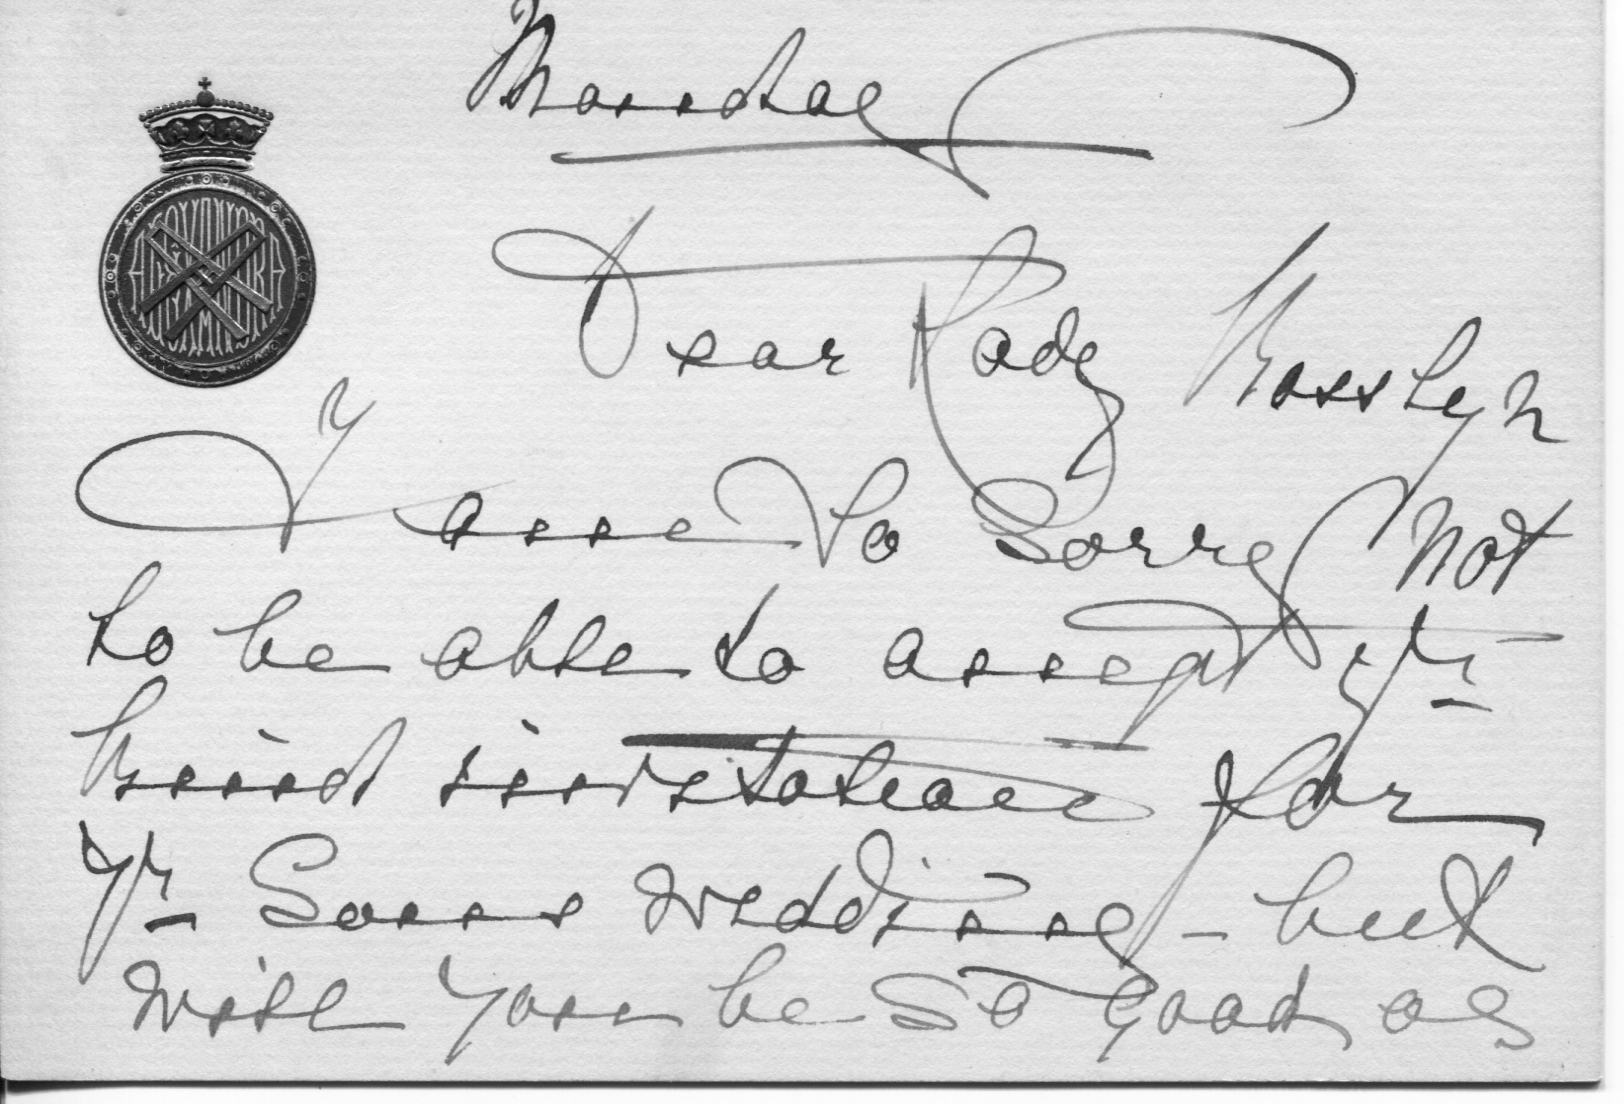 Monday
Dear Lady Rosslyn
I am so sorry not
to be able to accept yr
kind invitation for
yr Sons wedding – but
will you be so good as